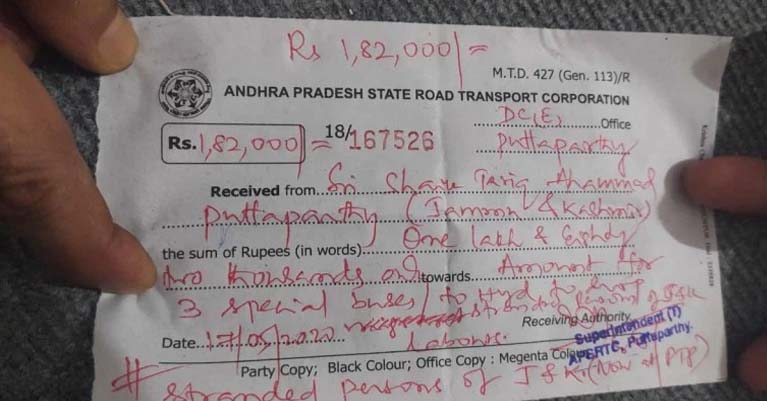 Rs 1,82,000/=
M.T.D. 427 (Gen. 113)/R
ANDHRA PRADESH STATE ROAD TRANSPORT CORPORATION
DC(E) Office
Rs. 1,82,000/= 18/167526 Puttaparthy
Received from Sri Tariq Ahammad
Puttaparthy (Jammu & Kashmir)
the sum of Rupees (in words) One lakh & Eighty
two thousands only towards Amount for
3 special buses to Hyd to
Receiving Authority
Date 17/05/2020 labours.
Superintendent (T)
APSRTC, Puttaparthy.
Party Copy; Black Colour; Office Copy : Megenta
# stranded persons of J & K (Now at PTP)